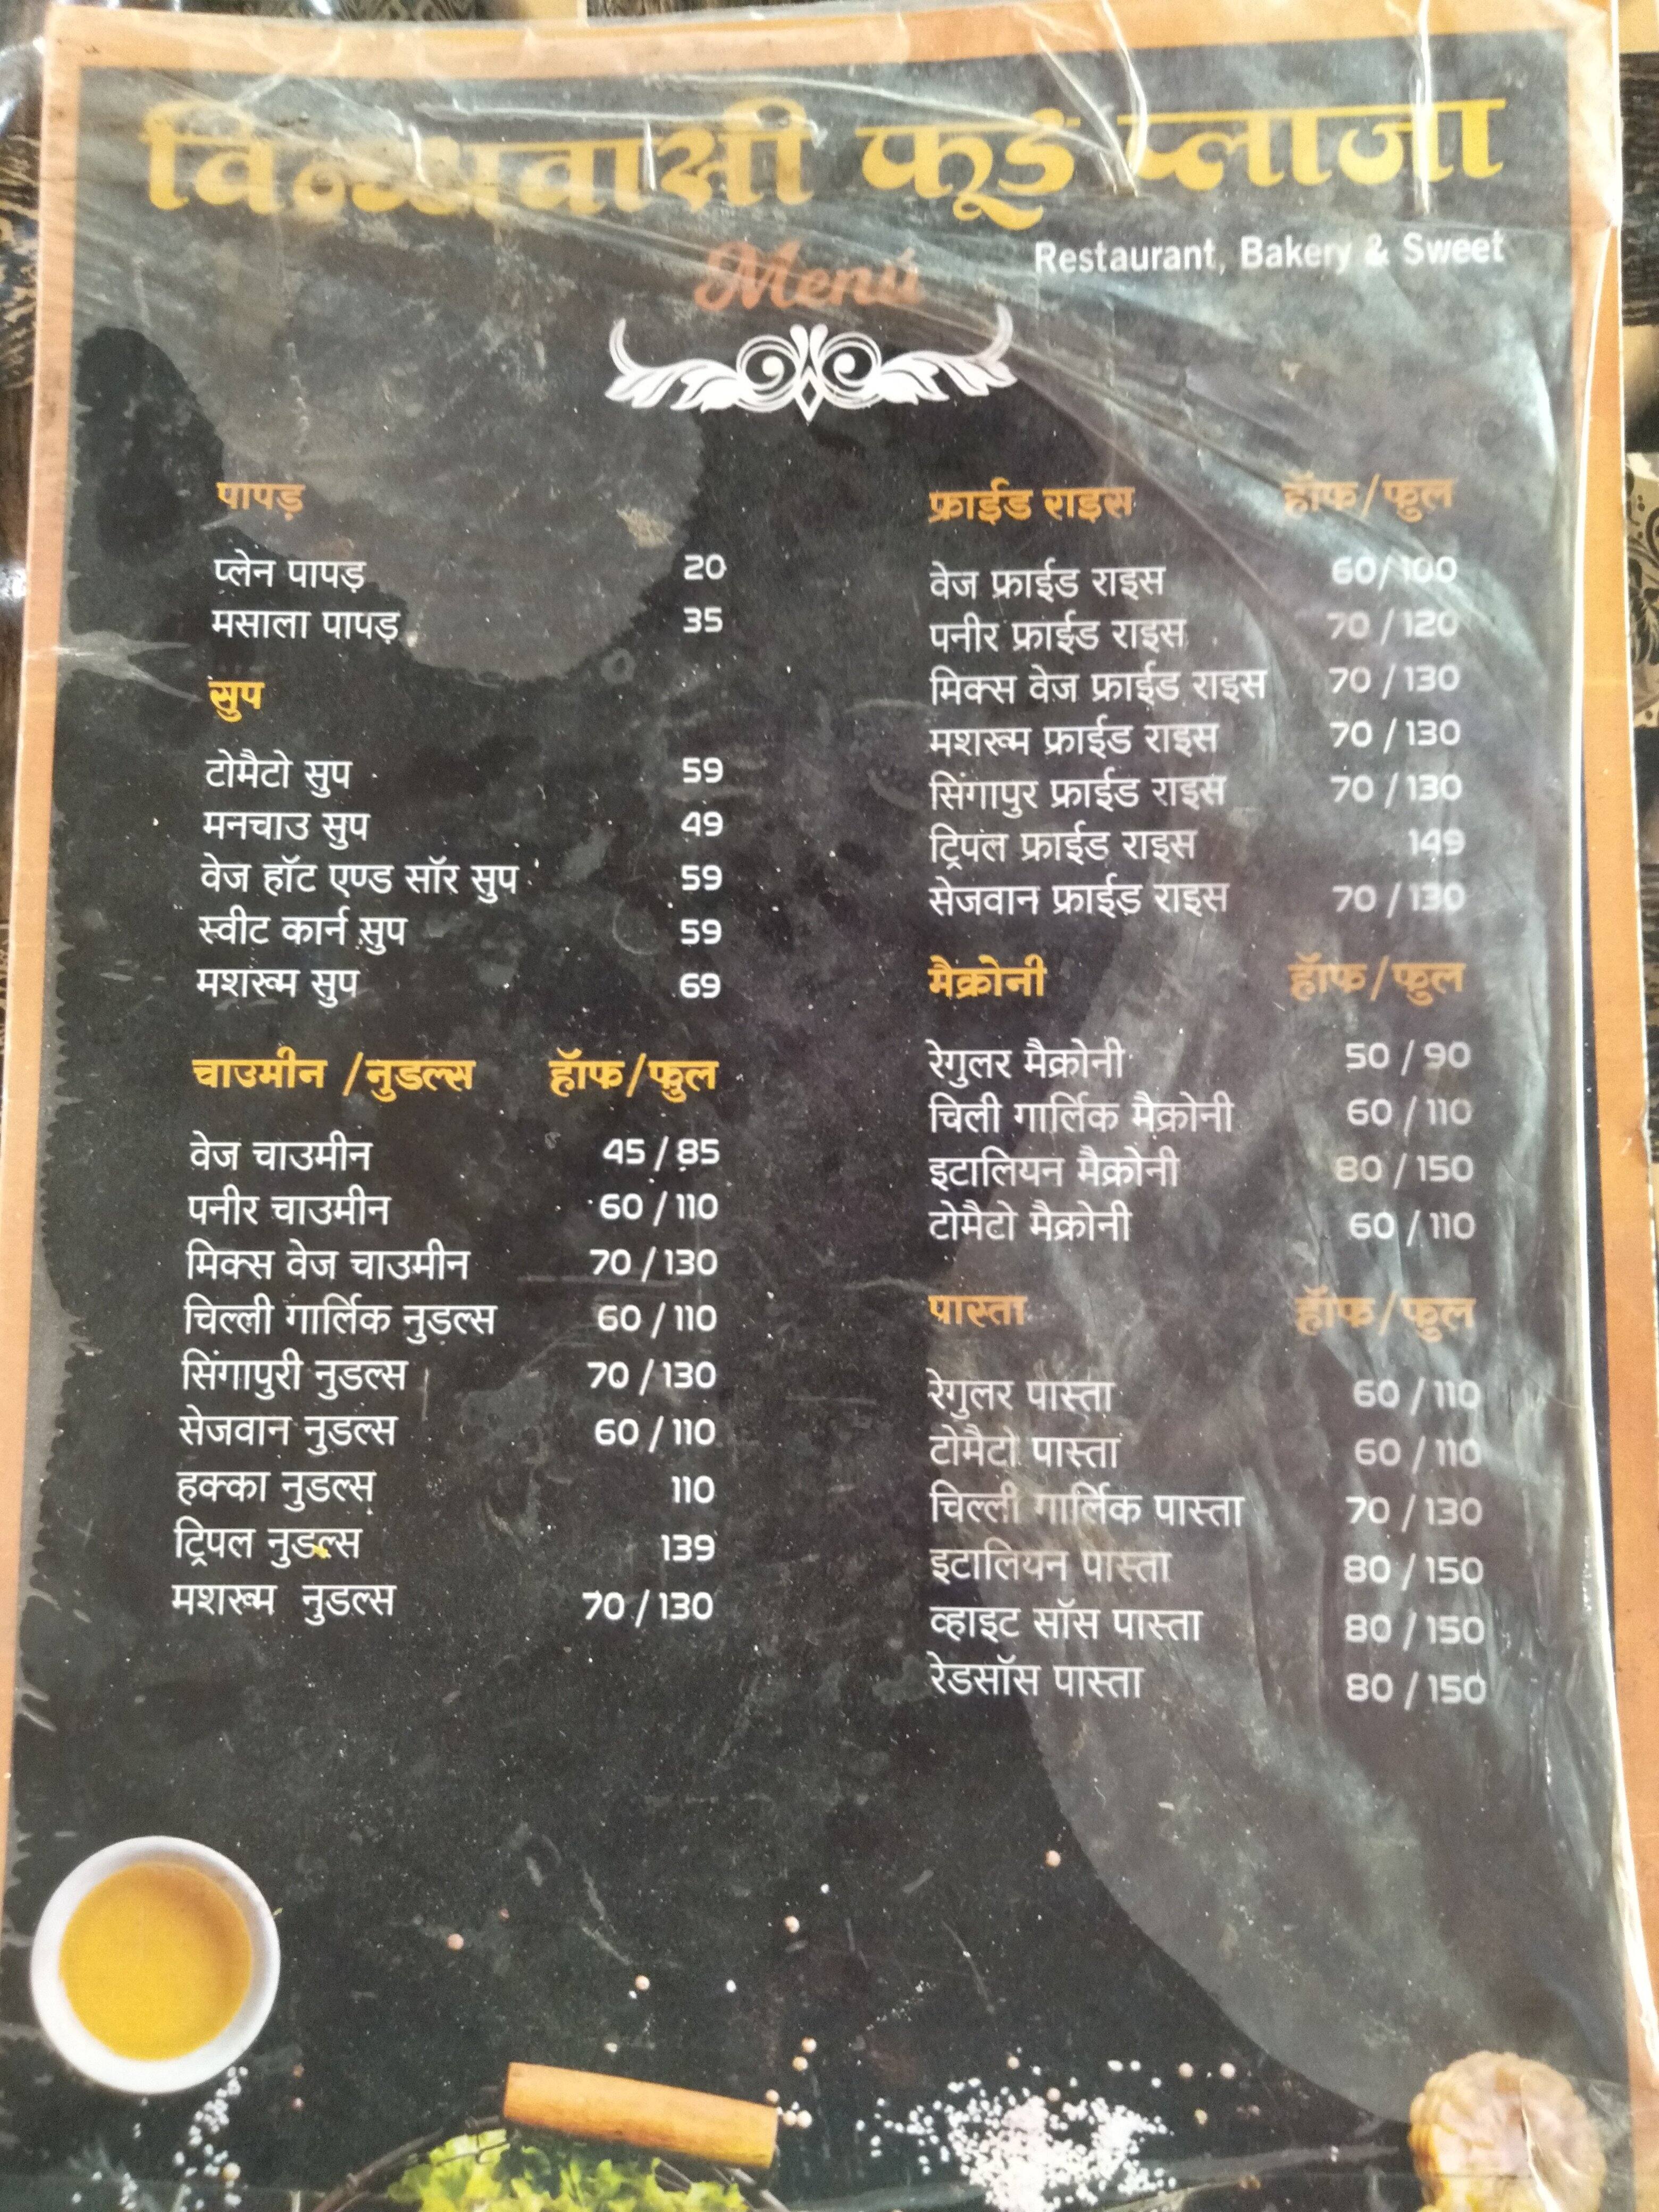 विन्ध्यवासी फूड प्लाजा
Restaurant, Bakery & Sweet
Menu
पापड़
प्लेन पापड़ 20
मसाला पापड़ 35
सुप
टोमैटो सुप 59
मनचाउ सुप 49
वेज हॉट एण्ड सॉर सुप 59
स्वीट कार्न सुप 59
मशरूम सुप 69
चाउमीन /नुडल्स हॉफ/फुल
वेज चाउमीन 45 / 85
पनीर चाउमीन 60 / 110
मिक्स वेज चाउमीन 70 / 130
चिल्ली गार्लिक नुडल्स 60 / 110
सिंगापुरी नुडल्स 70 / 130
सेजवान नुडल्स 60 / 110
हक्का नुडल्स 110
ट्रिपल नुडल्स 139
मशरूम नुडल्स 70 / 130
फ्राईड राइस हॉफ/फुल
वेज फ्राईड राइस 60/100
पनीर फ्राईड राइस 70 / 120
मिक्स वेज फ्राईड राइस 70 / 130
मशरूम फ्राईड राइस 70 / 130
सिंगापुर फ्राईड राइस 70 / 130
ट्रिपल फ्राईड राइस 149
सेजवान फ्राईड राइस 70 / 130
मैक्रोनी हॉफ/फुल
रेगुलर मैक्रोनी 50 / 90
चिली गार्लिक मैक्रोनी 60 / 110
इटालियन मैक्रोनी 80 / 150
टोमैटो मैक्रोनी 60 / 110
पास्ता हॉफ/फुल
रेगुलर पास्ता 60 / 110
टोमैटो पास्ता 60 / 110
चिल्ली गार्लिक पास्ता 70 / 130
इटालियन पास्ता 80 / 150
व्हाइट सॉस पास्ता 80 / 150
रेडसॉस पास्ता 80 / 150